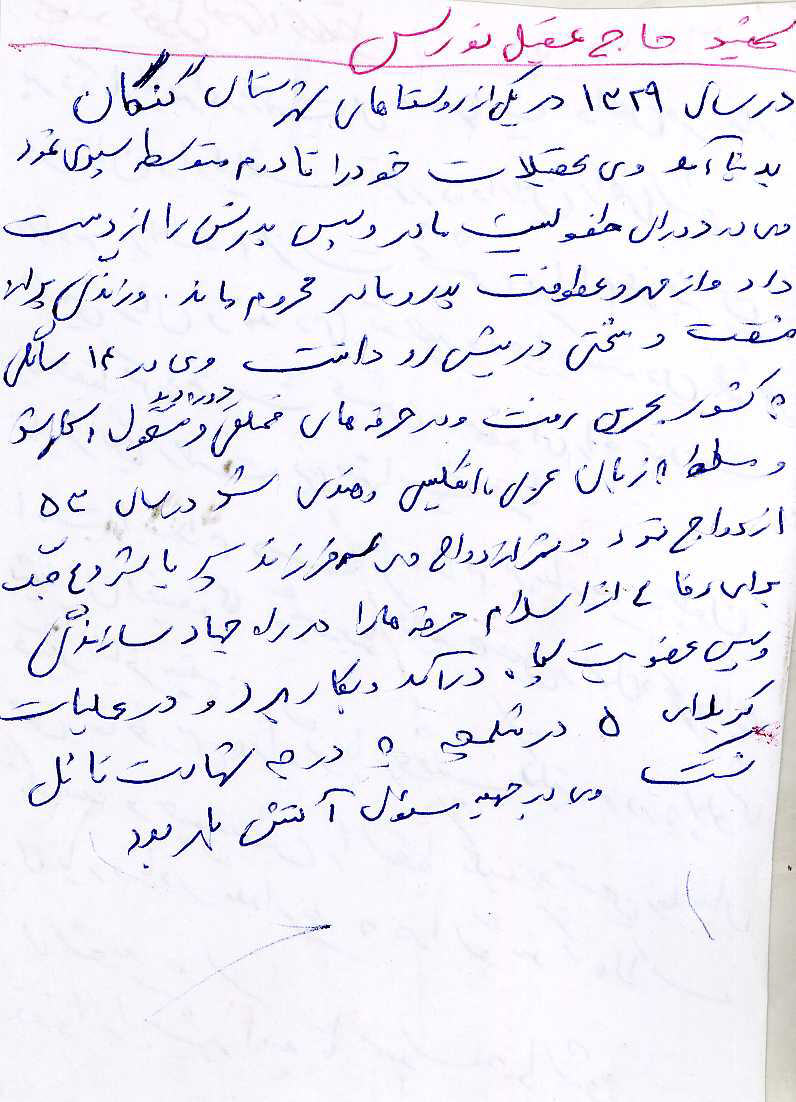 شهید حاج عقیل نورس
در سال ۱۳۲۹ در یکی از روستاهای شهرستان کنگان
بدنیا آمد وی تحصیلات خود را تا دوم متوسطه سپری نمود
وی در دوران طفولیت مادر و سپس پدرش را از دست
داد و از مهر و عطوفت پدر و مادر محروم ماند. و زندگی پر از
مشقت و سختی در پیش رو داشت وی در ۱۴ سالگی
به کشور بحرین رفت و در حرفه های مختلفی دوره دید و مشغول بکار شد
و مسلط به زبان عربی، انگلیسی و هندی شد در سال ۵۳
ازدواج نمود و ثمر ازدواج وی سه فرزند پسر با شروع جنگ
برای دفاع از اسلام حرفه ها را در راه جهاد سازندگی
و سپس عضویت سپاه درآمد و بکار برد و در عملیات
کربلای ۵ در شلمچه به درجه شهادت نائل
گشت وی در جبهه مسئول آتش بار بود